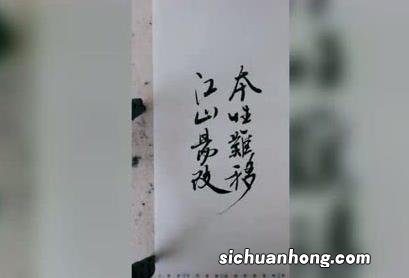 本性難移
江山易改
sichuanhong.com